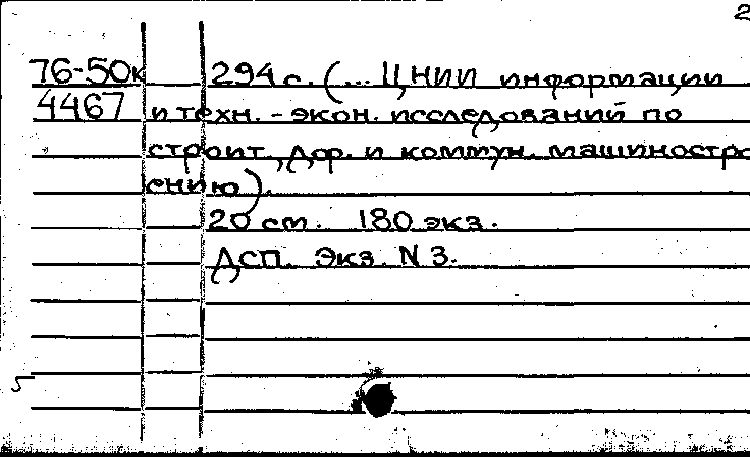 2
76-50к 294 с. (... ЦНИИ информации
4467 и техн.-экон. исследований по
строит., дор. и коммун. машиностро
ению).
20 см. 180 экз.
ДСП. Экз. N 3.